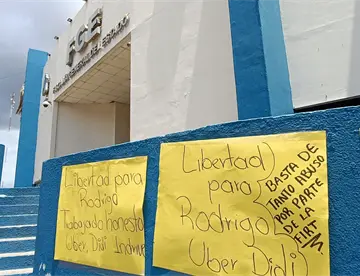 FGE
FISCALÍA GENERAL DEL ESTADO
Libertad para
Rodrigo
Trabajado honesto
Uber, Didi Indrive
Libertad
para
Rodrigo
Uber Didi
BASTA DE
TANTO ABUSO
POR PARTE
DE LA